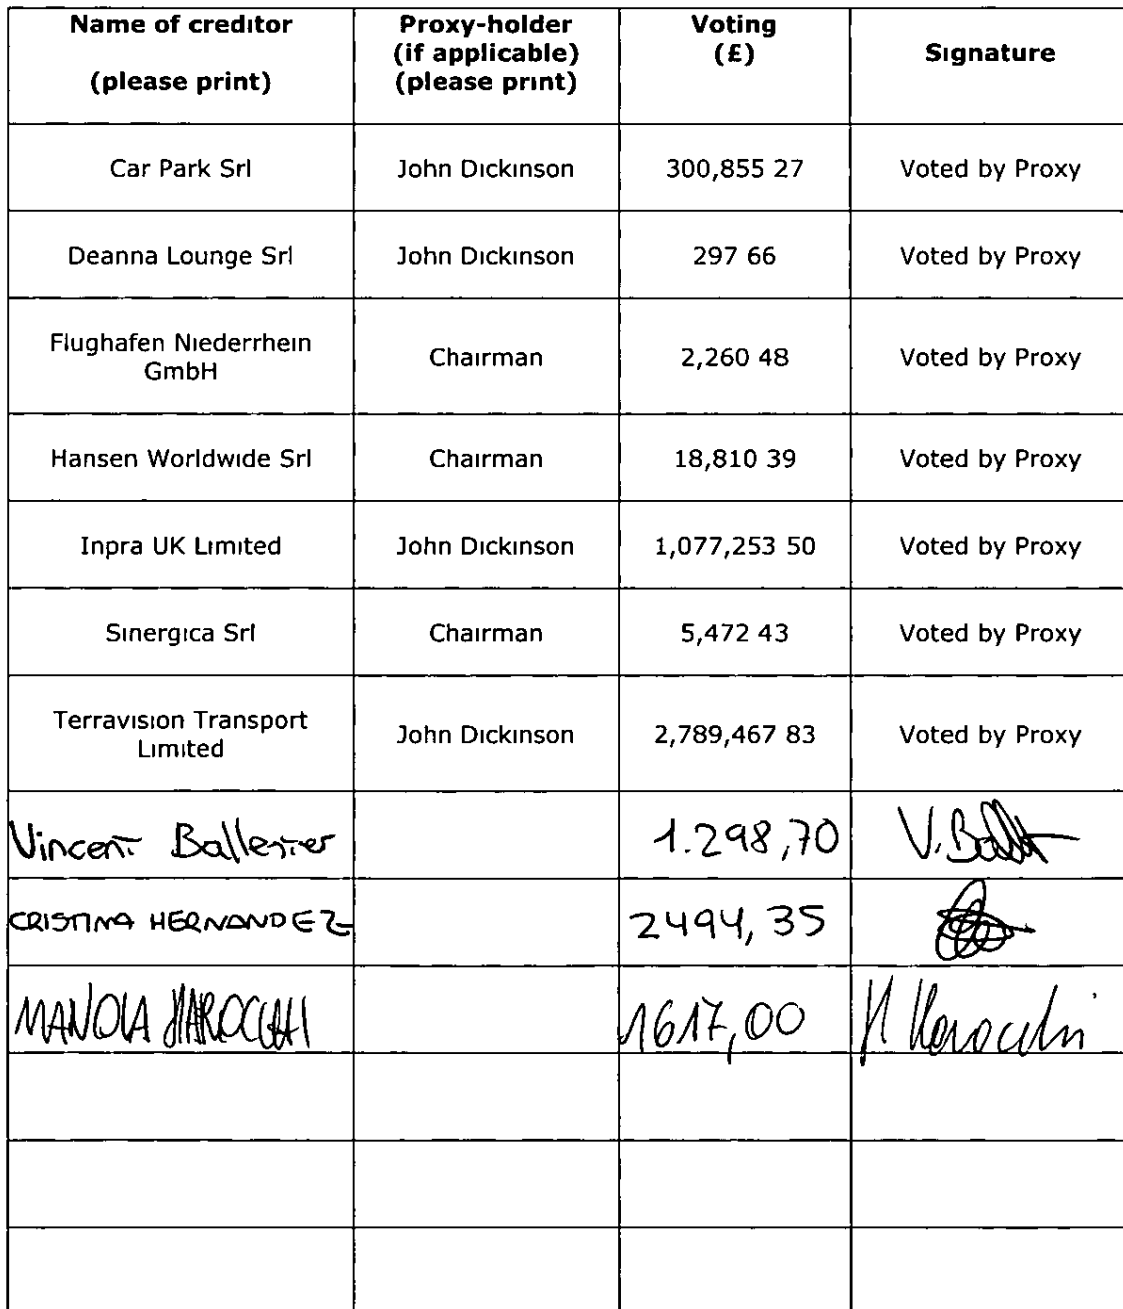 Name of creditor
(please print)
Proxy-holder
(if applicable)
(please print)
Voting
(£)
Signature
Car Park Srl
John Dickinson
300,855 27
Voted by Proxy
Deanna Lounge Srl
John Dickinson
297 66
Voted by Proxy
Flughafen Niederrhein
GmbH
Chairman
2,260 48
Voted by Proxy
Hansen Worldwide Srl
Chairman
18,810 39
Voted by Proxy
Inpra UK Limited
John Dickinson
1,077,253 50
Voted by Proxy
Sinergica Srl
Chairman
5,472 43
Voted by Proxy
Terravision Transport
Limited
John Dickinson
2,789,467 83
Voted by Proxy
Vincent Ballester
1.298,70
CRISTINA HERNANDEZ
2494,35
MANOLA MAROCCHI
1617,00